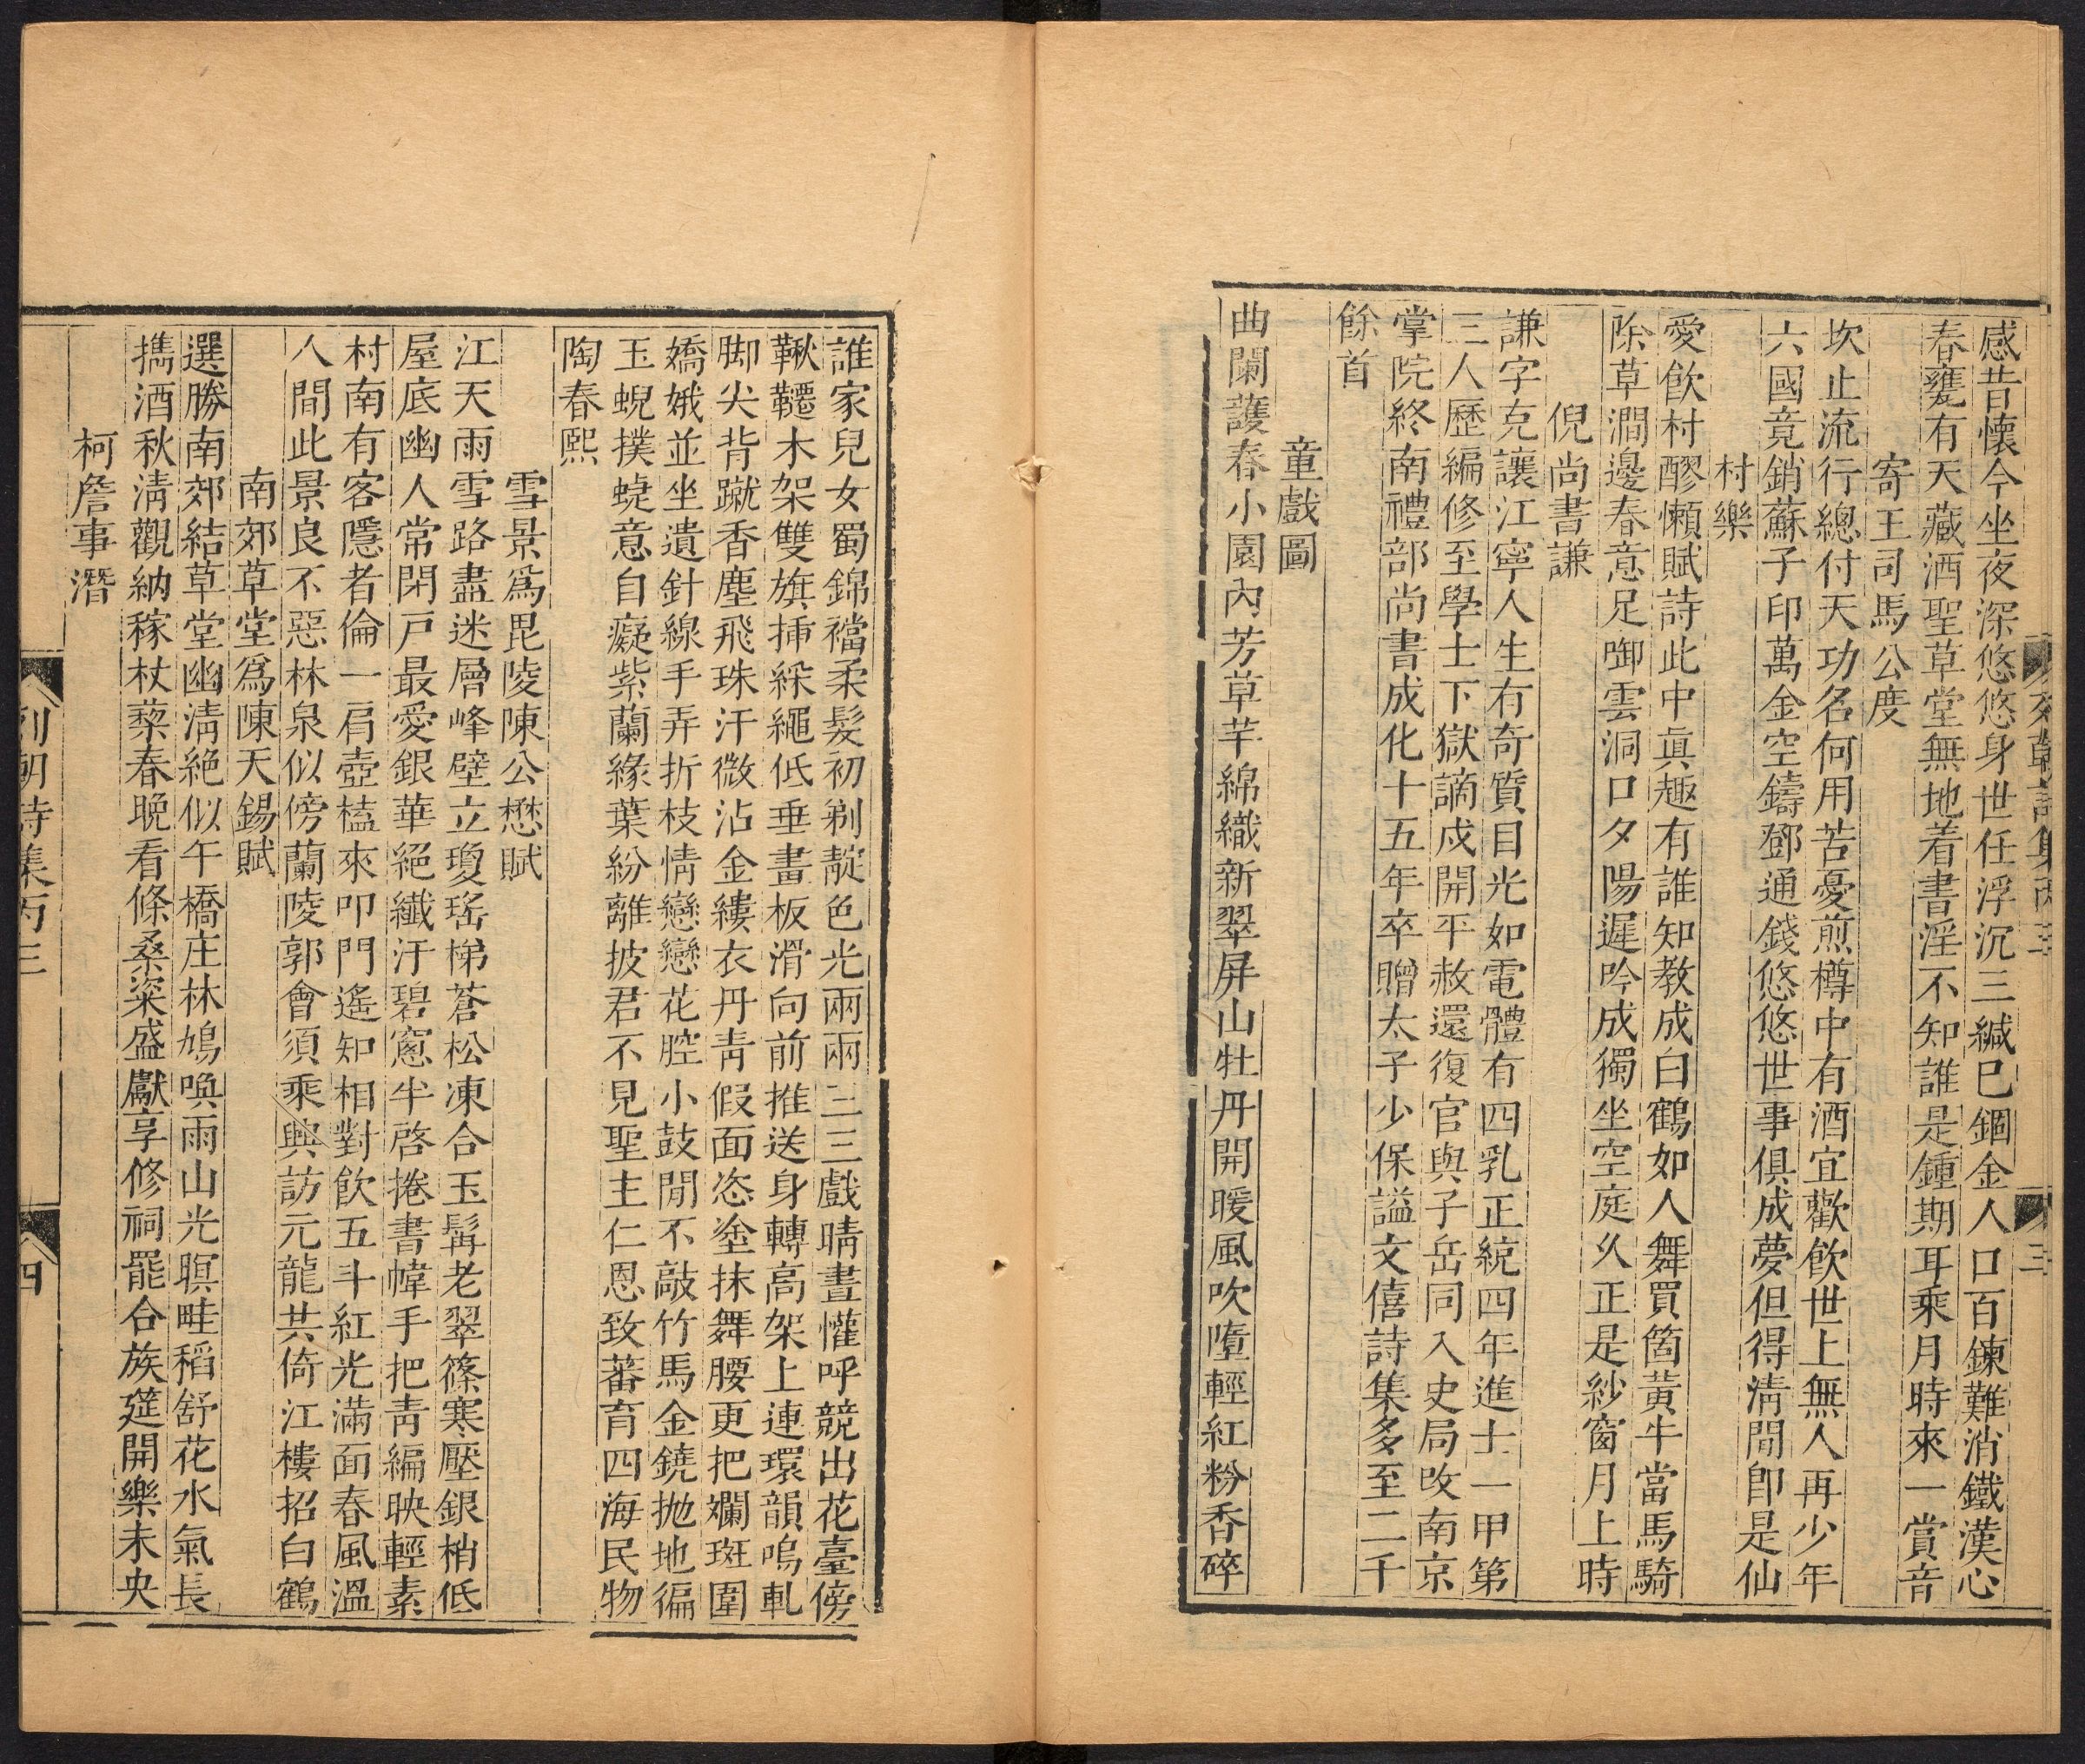 感昔懷今坐夜深悠悠身世任浮沉三緘已錮金人口百鍊難消鐵漢心
春甕有天藏酒聖草堂無地着書淫不知誰是鍾期耳乘月時來一賞音
寄王司馬公度
坎止流行總付天功名何用苦憂煎樽中有酒宜歡飲世上無人再少年
六國竟銷蘇子印萬金空鑄鄧通錢悠悠世事俱成夢但得清閒卽是仙
村樂
愛飲村醪懶賦詩此中眞趣有誰知教成白鶴如人舞買箇黃牛當馬騎
除草澗邊春意足啣雲洞口夕陽遲吟成獨坐空庭久正是紗窗月上時
倪尚書謙
謙字克讓江寧人生有奇質目光如電體有四乳正統四年進士一甲第
三人歷編修至學士下獄謫戍開平赦還復官與子岳同入史局改南京
掌院終南禮部尚書成化十五年卒贈太子少保謚文僖詩集多至二千
餘首
童戲圖
曲闌護春小園內芳草芊綿織新翠屏山牡丹開暖風吹墮輕紅粉香碎
列朝詩集丙三
三
誰家兒女蜀錦襠柔髮初剃靛色光兩兩三三戲晴晝懽呼競出花臺傍
鞦韆木架雙旗揷綵繩低垂畫板滑向前推送身轉高架上連環韻嗚軋
脚尖背蹴香塵飛珠汗微沾金縷衣丹靑假面恣塗抹舞腰更把斕斑圍
嬌娥並坐遺針線手弄折枝情戀戀花腔小鼓閒不敲竹馬金鐃抛地徧
玉蜺撲蜨意自癡紫蘭緣葉紛離披君不見聖主仁恩致蕃育四海民物
陶春熙
雪景爲毘陵陳公懋賦
江天雨雪路盡迷層峰壁立瓊瑤梯蒼松凍合玉髯老翠篠寒壓銀梢低
屋底幽人常閉戸最愛銀華絕纖汙碧窻半啓捲書幃手把靑編映輕素
村南有客隱者倫一肩壺榼來叩門遙知相對飮五斗紅光滿面春風溫
人間此景良不惡林泉似傍蘭陵郭會須乘興訪元龍共倚江樓招白鶴
南郊草堂爲陳天錫賦
選勝南郊結草堂堂幽淸絕似午橋庄林鳩喚雨山光暝畦稻舒花水氣長
攜酒秋淸觀納稼杖藜春晚看條桑粢盛獻享修祠罷合族筵開樂未央
柯詹事潛
列朝詩集丙三
四